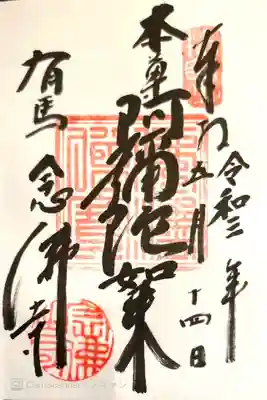 奉拝
令和三年
五月
十四日
本尊
阿彌陀如来
有馬
念佛寺